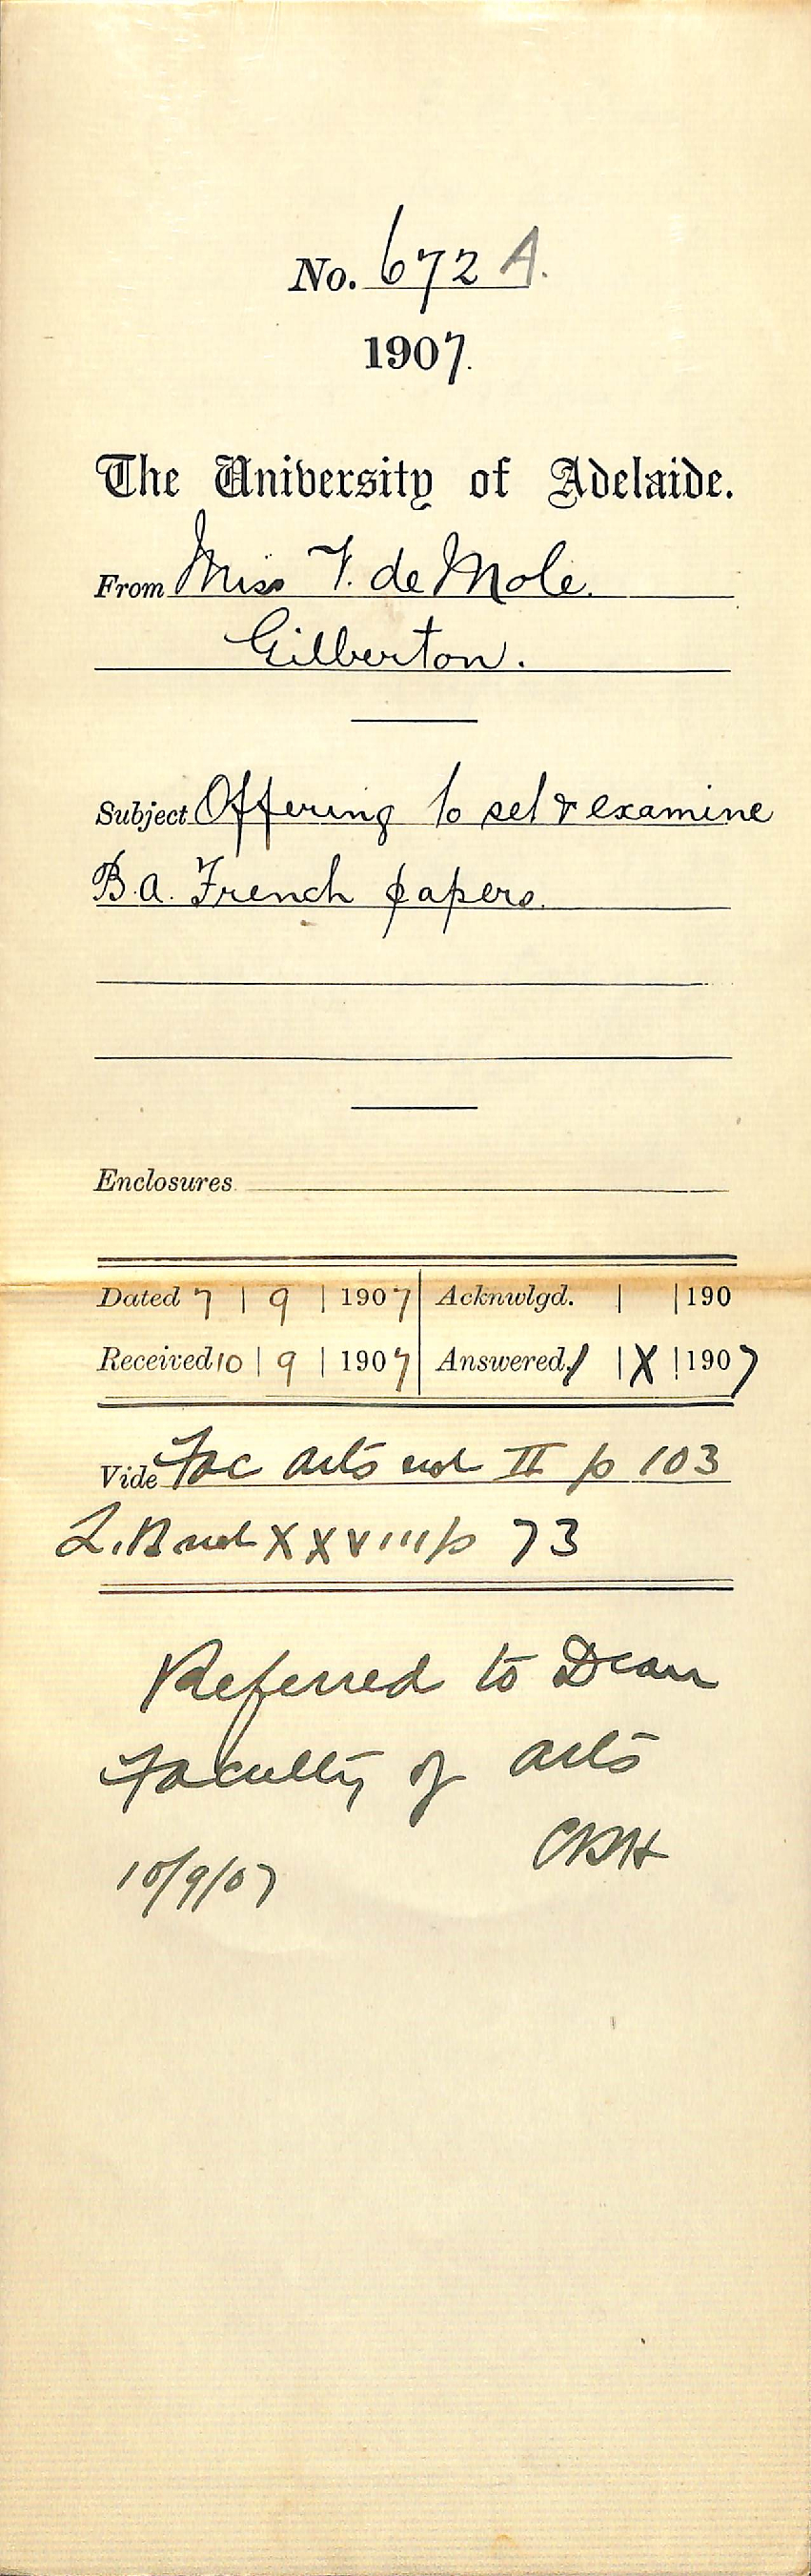 No. 672 A.
1907.
The University of Adelaide.
From Miss F. de Mole.
Gilberton.
Subject Offering to set & examine
B.A. French papers.
Enclosures
Dated 7 | 9 | 1907 Acknwlgd. | | 190
Received 10 | 9 | 1907 Answered 1 | X | 1907
Vide Fac Arts vol II p 103
L.B vol XXVIII p 73
Referred to Dean
Faculty of Arts
10/9/07 CRH